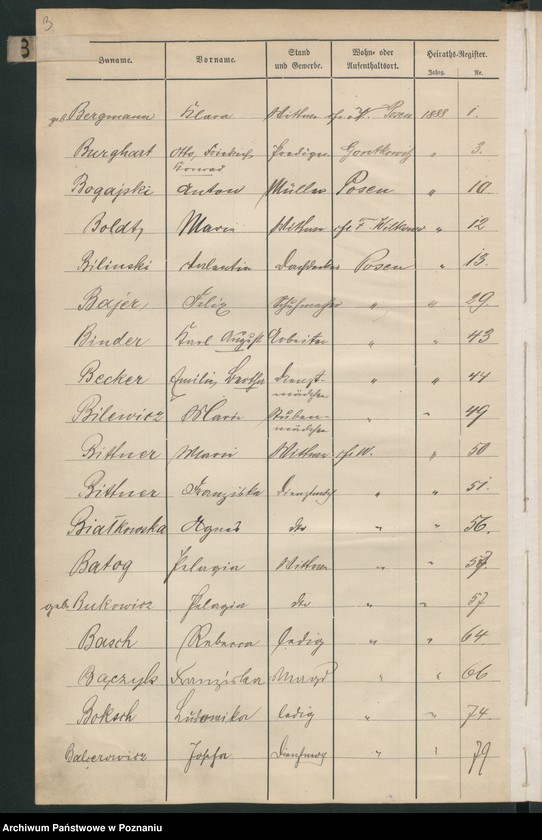 3.
B
Zuname. Vorname. Stand und Gewerbe. Wohn- oder Aufenthaltsort. Heiraths-Register. Jahrg. Nr.
geb. Bergmann Klara Wittwe Posen 1888 1.
Burghart Otto, Friedrich, Konrad Prediger " 3.
Bogajski Anton Müller Posen " 10
Boldt, Marie Wittwe " 12
Bilinski Valentin Dachdecker Posen " 13.
Bajer, Felix Schuhmacher " " 29
Binder Karl August Arbeiter " " 43
Becker Emilie Bertha Dienst-mädchen " " 44
Bilewicz Marie Stuben-mädchen " " 49
Bittner Marie Wittwe " 50
Bittner Franziska " " 51.
Białkowska Agnes dto " " 56.
Batog Pelagia Wittwe " "
geb. Bukowicz Pelagia dto " " 57
Basch Rebecca ledig " " 64
Bączyk Franziska Magd " " 66
Boksch Ludowika ledig " " 74.
Balcerowicz Josefa " " 79
Archiwum Państwowe w Poznaniu